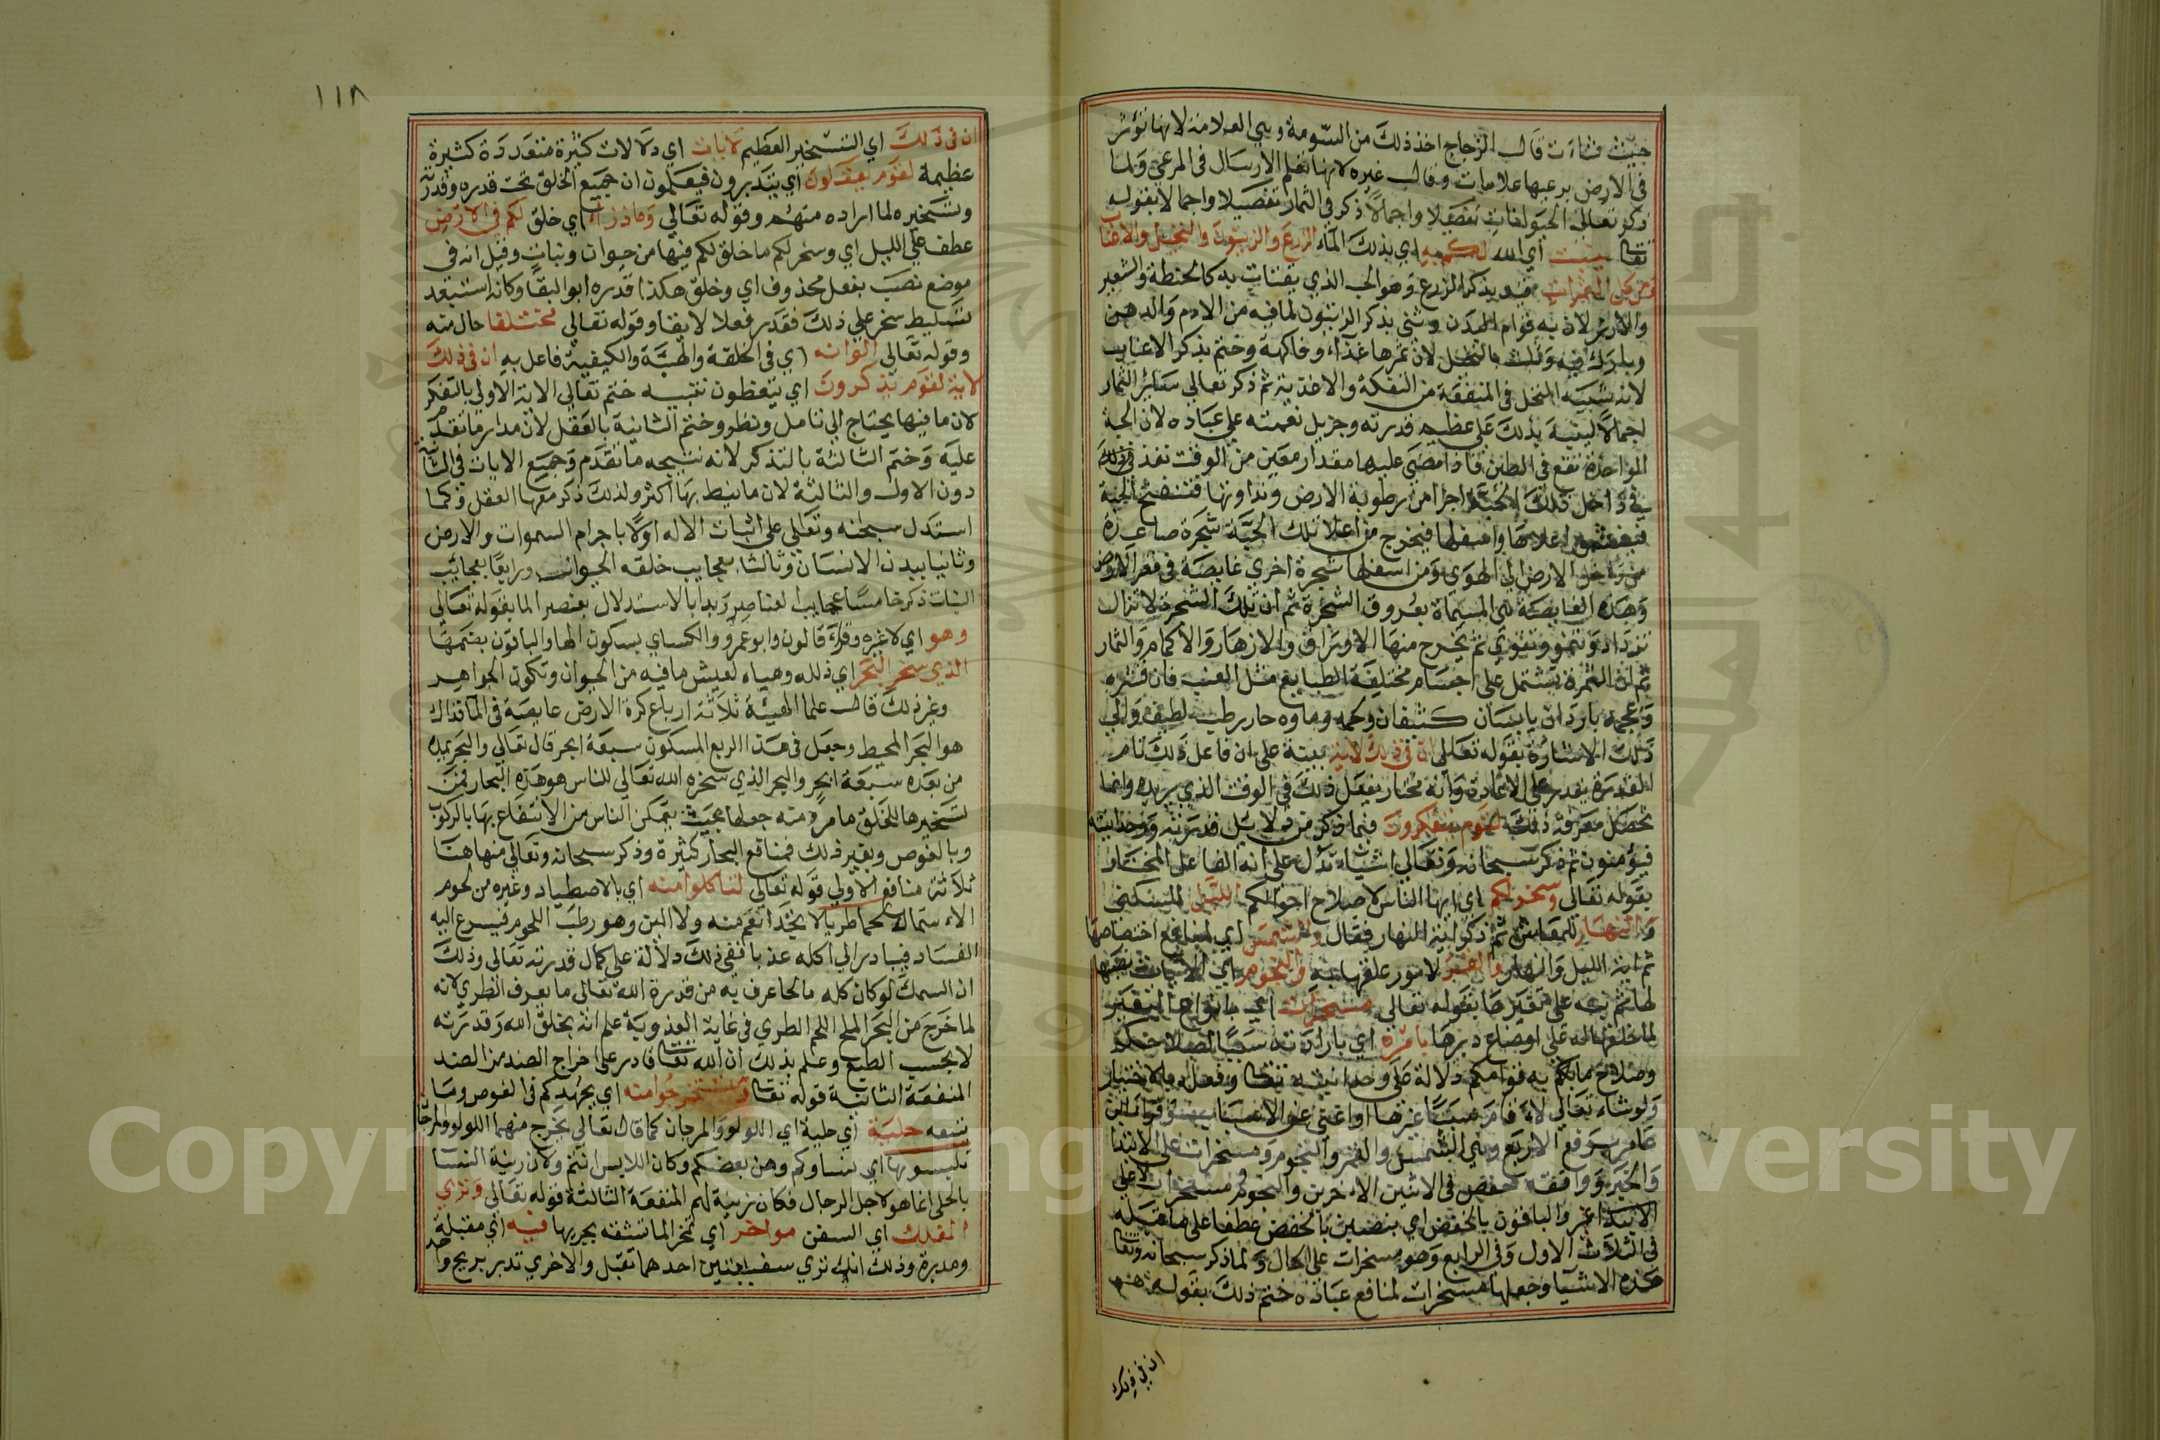 حيث شاءت قال الزجاج اخذ ذلك من السومة وهي العلامة لانها تؤثر
في الارض برعيها علامات وقال غيره لانها تعلم الارسال في المرعى ولما
ذكر تعالى الحيوانات تفصيلا واجمالا ذكر في الثمار تفصيلا واجمالا بقوله
تعا ينبت اي الله لكم به اي بذلك الماء الزرع والزيتون والنخيل والاعناب
ومن كل الثمرات فبدء بذكر الزرع وهو الحب الذي يقتات به كالحنطة والشعير
والارز لان به قوام البدن وثنى بذكر الزيتون لما فيه من الادم والدهن
وبارك فيه وثلث بالنخل لان ثمرها غذاء وفاكهة وختم بذكر الاعناب
لانه شبيه النخل في المنفعة من التفكه والاغذية ثم ذكر تعالى سائر الثمار
اجمالا لينبه بذلك على عظيم قدرته وجزيل نعمته على عباده لان الحبة
الواحدة تقع في الطين فاذا مضى عليها مقدار معين من الوقت نفذ
في داخل تلك الحبة اجزا من رطوبة الارض ونداوتها فتنتفخ الحبة
فينشق اعلاها واسفلها فيخرج من اعلا تلك الحبة شجرة صاعدة
من داخل الارض الى الهوى ومن اسفلها شجرة اخرى غايصة في قعر الارض
وهذه الغايصة هي المسماة بعروق الشجرة ثم ان تلك الشجرة لا تزال
تزداد وتنمو وتقوي ثم يخرج منها الاوراق والازهار والاكمام والثمار
ثم ان الثمرة تشتمل على اجسام مختلفة الطبايع مثل العنب فان قشره
وعجمه باردان يابسان كثيفان ولحمه وماوه حار رطب لطيف والى
ذلك الاشارة بقوله تعالى ان في ذلك لاية بينة على ان فاعل ذلك تام
القدرة يقدر على الاعادة وانه مختار يفعل ذلك في الوقت الذي يريده وانما
تحصل معرفة ذلك لقوم يتفكرون فيما ذكر من دلايل قدرته ووحدانيته
فيؤمنون ثم ذكر سبحانه وتعالى اشياء تدل على انه الفاعل المختار
بقوله تعالى وسخر لكم اي ايها الناس لاصلاح احوالكم الليل للسكنى
والنهار للمعاش ثم ذكر اية النهار فقال والشمس اي لمنافع اختصاصها
ثم اية الليل والنهار والقمر لامور علقها به والنجوم اي لايات نصبها
لها ثم نبه على تغيرها بقوله تعالى مسخرات اي بانواع التغير
لما خلقها له على اوضاع دبرها بامره اي بارادته سببا لصلاحكم
وصلاح ما به قوامكم دلالة على وحدانيته تعا وفعله بالاختيار
ولو شاء تعالى لاقام سببا غيرها او اغنى عن الاسباب وقرا ابن
عامر برفع الاربع وهي الشمس والقمر والنجوم ومسخرات على الابتدا
والخبر ووافقه حفص في الاثنين الاخرين والنجوم مسخرات على
الابتدا والخبر والباقون بالخفض اي بنصبين بالخفض عطفا على ما قبله
في الثلاث الاول وفي الرابع وهو مسخرات على الحال ولما ذكر سبحانه وتعا
هذه الاشيا وجعلها مسخرات لمنافع عباده ختم ذلك بقوله
ان في ذلك
١١٨
ان في ذلك اي التسخير العظيم لايات اي دلالات كثيرة متعددة كثيرة
عظيمة لقوم يعقلون اي يتدبرون فيعلمون ان جميع الخلق تحت قدره وقدرته
وتسخيره لما اراده منهم وقوله تعالى وما ذرا اي خلق لكم في الارض
عطف على الليل اي وسخر لكم ما خلق لكم فيها من حيوان ونبات وقيل انه في
موضع نصب بفعل محذوف اي وخلق هكذا قدره ابو البقا وكانه استبعد
تسليط سخر على ذلك فقدر فعلا لايقا وقوله تعالى مختلفا حال منه
وقوله تعالى الوانه اي في الخلقة والهيئة والكيفية فاعل به ان في ذلك
لاية لقوم يذكرون اي يتعظون تنبيه ختم تعالى الاية الاولى بالتفكر
لان ما فيها يحتاج الى تامل ونظر وختم الثانية بالعقل لان مدار ما تقدم
عليه وختم الثالثة بالتذكر لانه نتيجه ما تقدم وجميع الايات في الثانية
دون الاولى والثالثة لان ما ينيط بها اكثر ولذلك ذكر معها العقل وكما
استدل سبحانه وتعالى على اثبات الاله اولا باجرام السموات والارض
وثانيا ببدن الانسان وثالثا بعجايب خلقه الحيوانات ورابعا بعجايب
النبات ذكر خامسا عجايب العناصر وبدا بالاستدلال بعنصر الما بقوله تعالى
وهو اي لا غيره وقرا قالون وابو عمرو والكساي بسكون الها والباقون بضمها
الذي سخر البحر اي ذلله وهياه لعيش ما فيه من الحيوان وتكون الجواهر
وغير ذلك قال علما الهيئة ثلاثة ارباع كرة الارض غايصة في الما فذاك
هو البحر المحيط وجعل في هذا الربع المسكون سبعة ابحر قال تعالى والبحر يمده
من بعده سبعة ابحر والبحر الذي سخره الله تعالى للناس هو هذه البحار فمن
تسخيرها للخلق ما مر منه جعلها بحيث يتمكن الناس من الانتفاع بها بالركوب
وبالغوص وبغير ذلك فمنافع البحار كثيرة وذكر سبحانه وتعالى منها هنا
ثلاثة منافع الاولى قوله تعالى لتاكلوا منه اي بالاصطياد وغيره من لحوم
الاسماك لحما طريا لا تجد انعم منه ولا الين وهو رطب اللحوم فيسرع اليه
الفساد فيبادر الى اكله عذبا ففي ذلك دلالة على كمال قدرته تعالى وذلك
ان السمك لو كان كله مالحا عرف به من قدرة الله تعالى ما يعرف الطري لانه
لما خرج من البحر الملح اللحم الطري في غاية العذوبة علم انه بخلق الله وقدرته
لا بحسب الطبع وعلم بذلك ان الله تعا قادر على اخراج الضد من الضد
المنفعة الثانية قوله تعا وتستخرجوا منه اي بجهدكم في الغوص وما
يتبعه حلية اي حلية اي اللولو والمرجان كما قال تعالى يخرج منهما اللولو والمرجان
تلبسونها اي نساوكم وهن بعضكم وكان اللابس انتم ولان زينة النسا
بالحلى انما هو لاجل الرجال فكان زينة لهم المنفعة الثالثة قوله تعالى وترى
الفلك اي السفن مواخر اي تمخر الما تشقه بجريها فيه اي مقبلة
ومدبرة وذلك انك ترى سفينتين احدهما تقبل والاخرى تدبر بريح واحد
Copyright © King Saud University
جامعة الملك سعود